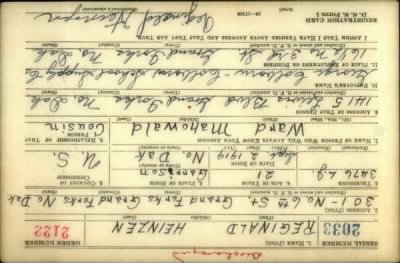 SERIAL NUMBER
2033
1. NAME (Print)
REGINALD HEINZEN
ORDER NUMBER
2122
2. ADDRESS (Print)
301 - No 6th St Grand Forks Grand Forks No Dak
3. TELEPHONE
3476 L.J.
4. AGE IN YEARS
21
5. PLACE OF BIRTH
Garrison
6. COUNTRY OF CITIZENSHIP
U. S.
DATE OF BIRTH
Sept 2 1919
No Dak
7. NAME OF PERSON WHO WILL ALWAYS KNOW YOUR ADDRESS
Ward Mahowald
8. RELATIONSHIP OF THAT PERSON
Cousin
9. ADDRESS OF THAT PERSON
1415 Lewis Blvd Grand Forks No Dak
10. EMPLOYER'S NAME
School Supply Co
11. PLACE OF EMPLOYMENT OR BUSINESS
No 3rd St Grand Forks No Dak
I AFFIRM THAT I HAVE VERIFIED ABOVE ANSWERS AND THAT THEY ARE TRUE.
REGISTRATION CARD
D. S. S. Form 1
Reginald Heinzen